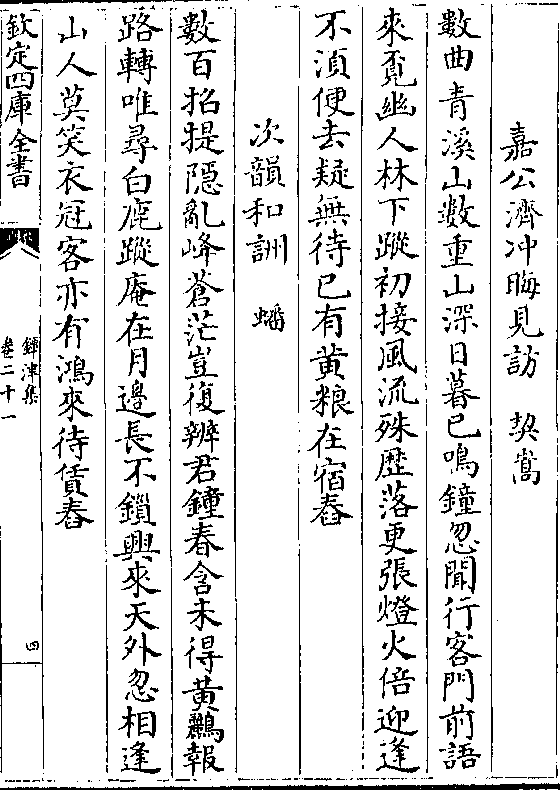 嘉公濟冲晦見訪　契嵩
數曲青溪山數重山深日暮已鳴鐘忽聞行客門前語
來覔幽人林下蹤初接風流殊歴落更張燈火倍迎逢
不湏便去疑無待已有黄粮在宿舂
次韻和詶　蟠
數百招提隱亂峰蒼茫豈復辨君鐘春含未得黄鸝報
路轉唯尋白鹿蹤庵在月邊長不鎖興來天外忽相逢
山人莫笑衣冠客亦有鴻來待賃舂
欽定四庫全書
鐔津集
卷二十一
四